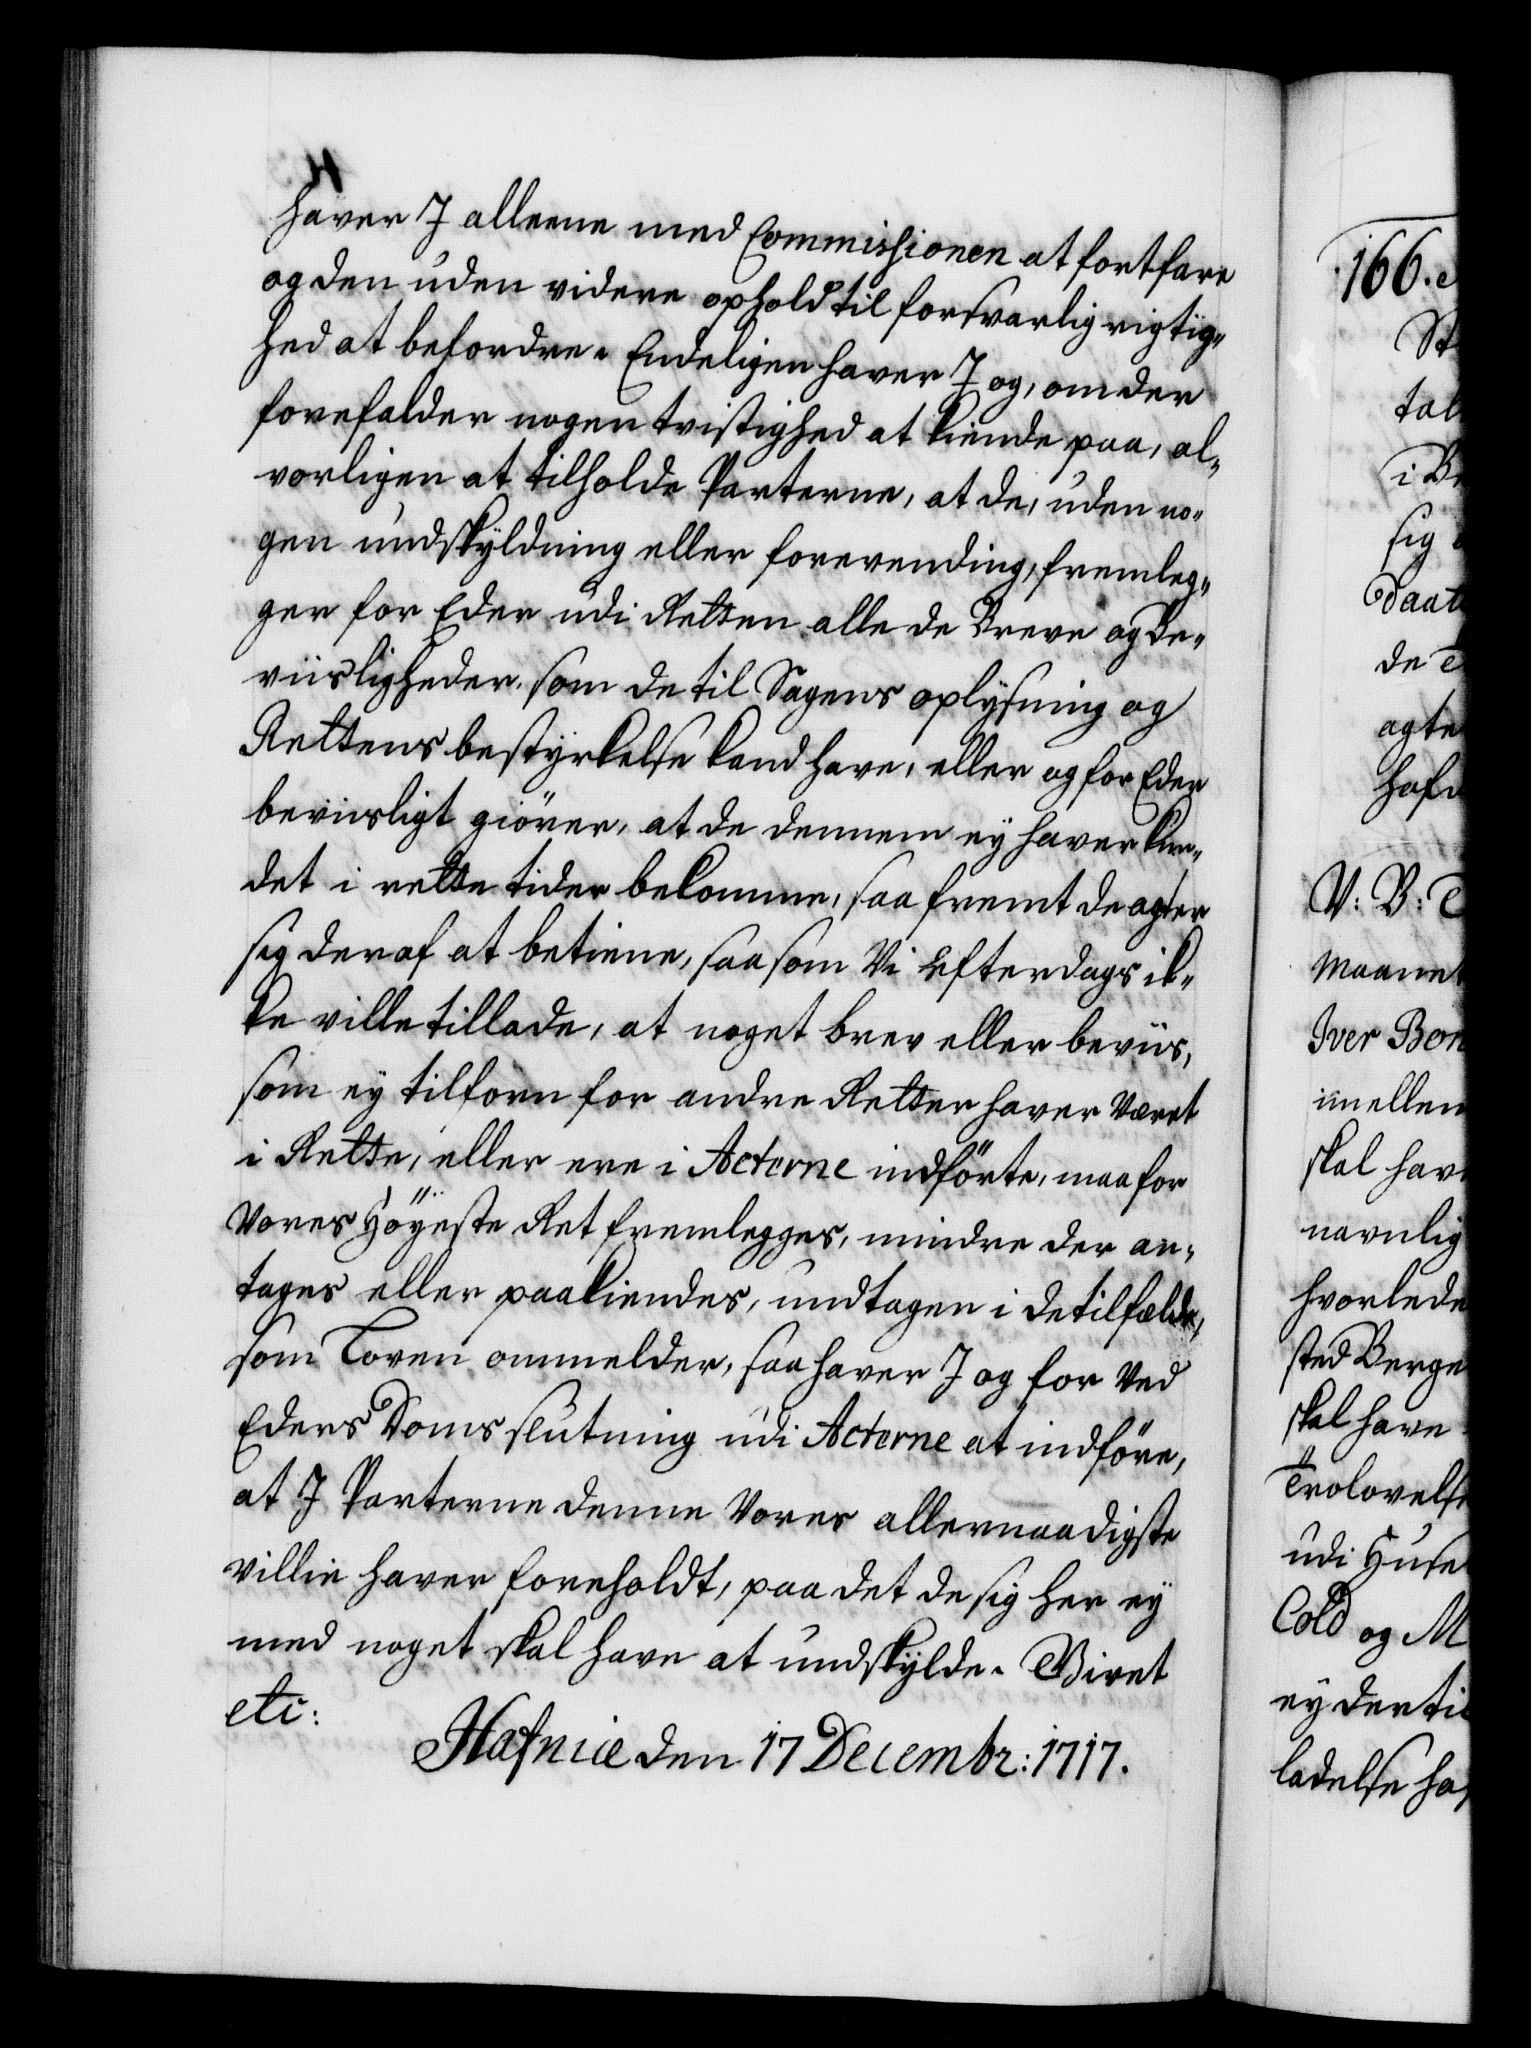 haver J alleene med Commissionen at fortfare
og den uden videre ophold til forsvarlig rigtig-
hed at befordre. Endeligen haver J og, om der
forefalder nogen tvistighed at kiende paa, al-
vorligen at tilholde Parterne, at de, uden no-
gen undskyldning eller forevending, fremleg-
ger for Eder udi Retten alle de Breve og Be-
viisligheder, som de til Sagens oplysning og
Rettens bestyrkelse kand have, eller og for Eder
beviisligt giörer, at de dennem ey haver kun-
det i rette tider bekomme, saa fremt de agter
sig deraf at betiene, saasom Vi efterdags ik-
ke ville tillade, at noget brev eller beviis,
som ey tilforn for andre Retter haver Været
i Rette, eller ere i Acterne indförte, maa for
Vores Höyeste Ret fremlegges, mindre der an-
tages eller paakiendes, undtagen i de tilfælde,
som Loven ommelder, saa haver J og for Ved
Eders Doms slutning udi Acterne at indföre,
at J Parterne denne Vores allernaadigste
villie haver foreholdt, paa det de sig her ey
med noget skal have at undskylde. Biret
etc:
Hafniæ den 17 Decembr: 1717.
166.
St
tal
i Be
sig
Daat
de
agte
hafv
V: B: T
maane
Iver Bon
imellem
skal hav
navnlig
hvorlede
sted Berge
skal have
Trolovelse
udi Huse
Cold og M
ey der til
ladelse ha